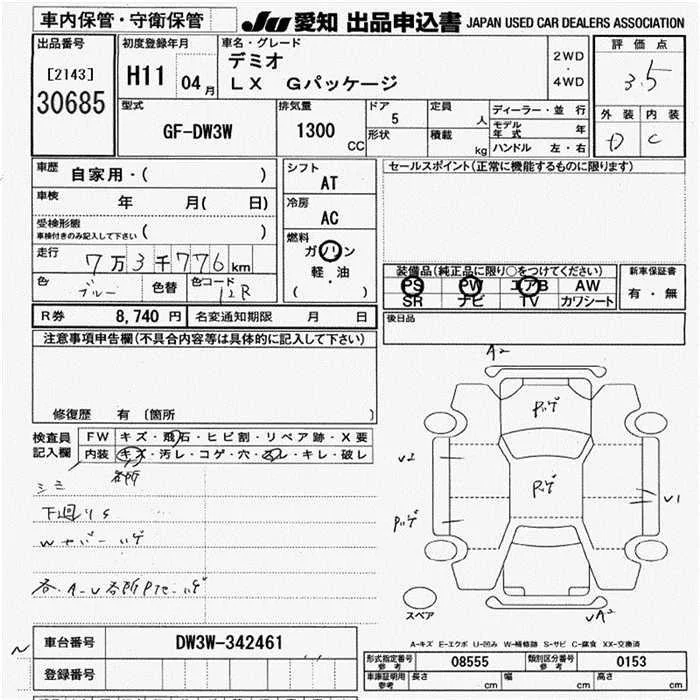 車内保管・守衛保管
JU 愛知 出品申込書 JAPAN USED CAR DEALERS ASSOCIATION
出品番号 初度登録年月 車名・グレード 評価点
[2143] H11 04月 デミオ 2WD・4WD 3.5
30685 LX Gパッケージ
外装 内装
D C
型式 排気量 ドア 定員 ディーラー・並行
GF-DW3W 1300 CC 5 人 モデル年式 年
形状 積載 kg ハンドル 左・右
車歴 自家用・( ) シフト セールスポイント(正常に機能するものに限ります)
AT
車検 年 月( 日) 冷房
AC
受検形態 ( )
車検付きのみ記入して下さい
燃料
走行 7万3千776km ガソリン
軽・油
( )
色 ブルー 色替 色コード 12R
装備品(純正品に限り○をつけてください) 新車保証書
PS PW エアB AW 有・無
SR ナビ TV カワシート
R券 8,740円 名変通知期限 月 日 後日品
注意事項申告欄(不具合内容等は具体的に記入して下さい)
修復歴 有 〔箇所 〕
検査員記入欄 FW キズ・飛石・ヒビ割・リペア跡・X要
内装 キズ・汚レ・コゲ・穴・スレ・キレ・破レ
各所
シミ
下廻りS
Wセバーハゲ
A2
Pハゲ
V2
Pハゲ
V1
Pハゲ
スペア
A-キズ E-エクボ U-凹み W-補修跡 S-サビ C-腐食 XX-交換済
車台番号 DW3W-342461
形式指定番号 参考 08555 類別区分番号 参考 0153
登録番号
車庫証明用 参考 長さ cm 幅 cm 高さ cm